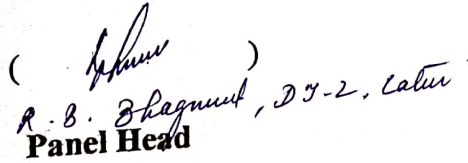 (                    )
R. B. Bhagwat, DJ-2, Latur
Panel Head